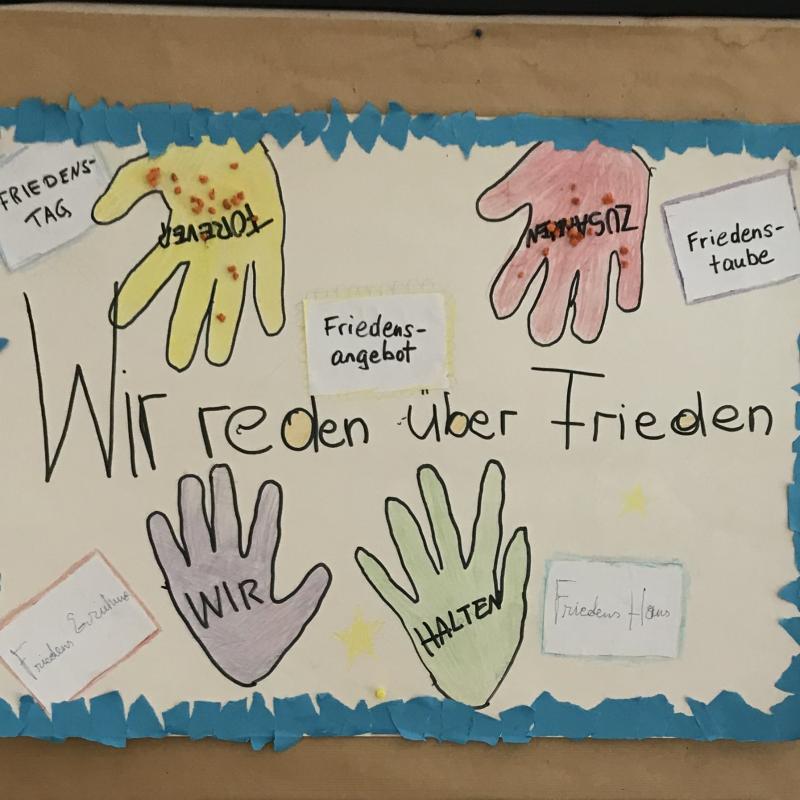 FRIEDENS-
TAG
FOREVER
ZUSAMMEN
Friedens-
taube
Friedens-
angebot
Wir reden über Frieden
WIR
HALTEN
Friedens
Friedens Haus